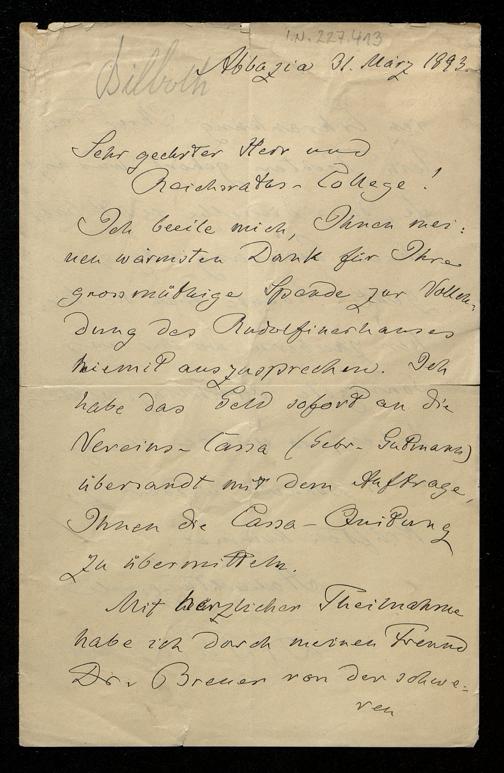 I.N. 227.413
Billroth
Abbazia 31. März 1893.
Sehr geehrter Herr und
Reichsraths-College!
Ich beeile mich, Ihnen mei:
nen wärmsten Dank für Ihre
grossmüthige Spende zur Vollen-
dung des Rudolfinerhauses
hiemit auszusprechen. Ich
habe das Geld sofort an die
Vereins-Cassa (Gebr. Gutmann)
übersandt mit dem Auftrage,
Ihnen die Cassa-Quittung
zu übermitteln.
Mit herzlicher Theilnahme
habe ich durch meinen Freund
Dr. Breuer von der schwe-
ren